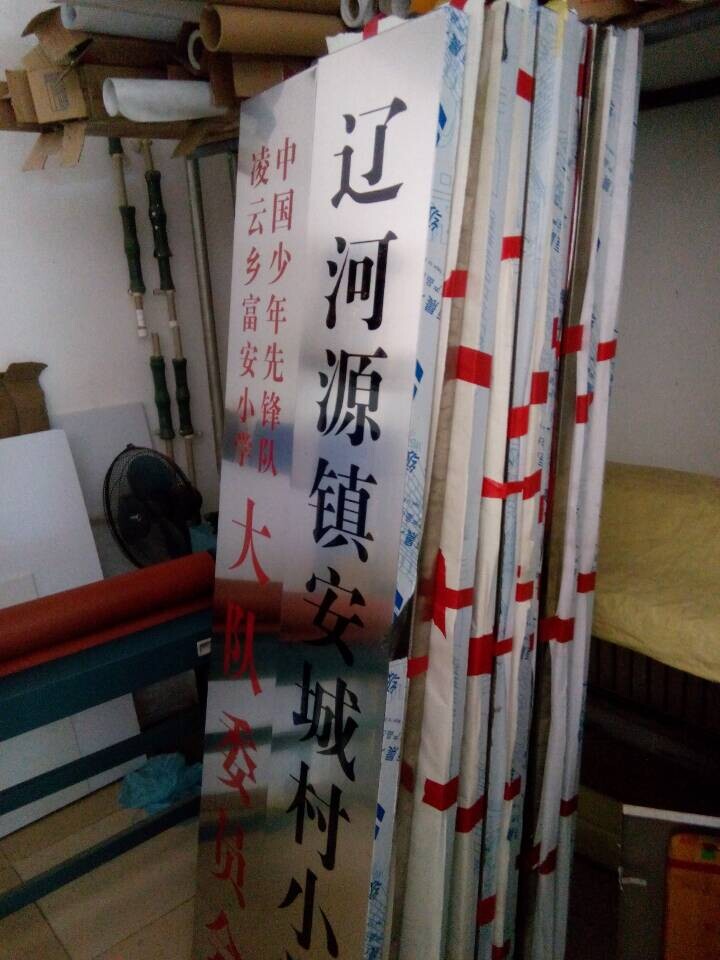 辽河源镇安城村小
中国少年先锋队
凌云乡富安小学
大队委员会